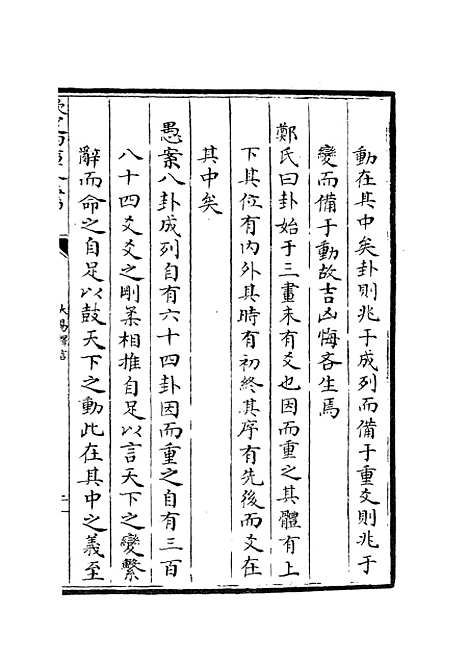 動在其中矣卦則兆于成列而備于重爻則兆于
變而備于動故吉凶悔吝生焉
鄭氏曰卦始于三畫未有爻也因而重之其體有上
下其位有内外其時有初終其序有先後而爻在
其中矣
愚案八卦成列自有六十四卦因而重之自有三百
八十四爻爻之剛柔相推自足以言天下之變繫
辭而命之自足以鼓天下之動此在其中之義至
欽定四庫全書
大易擇言